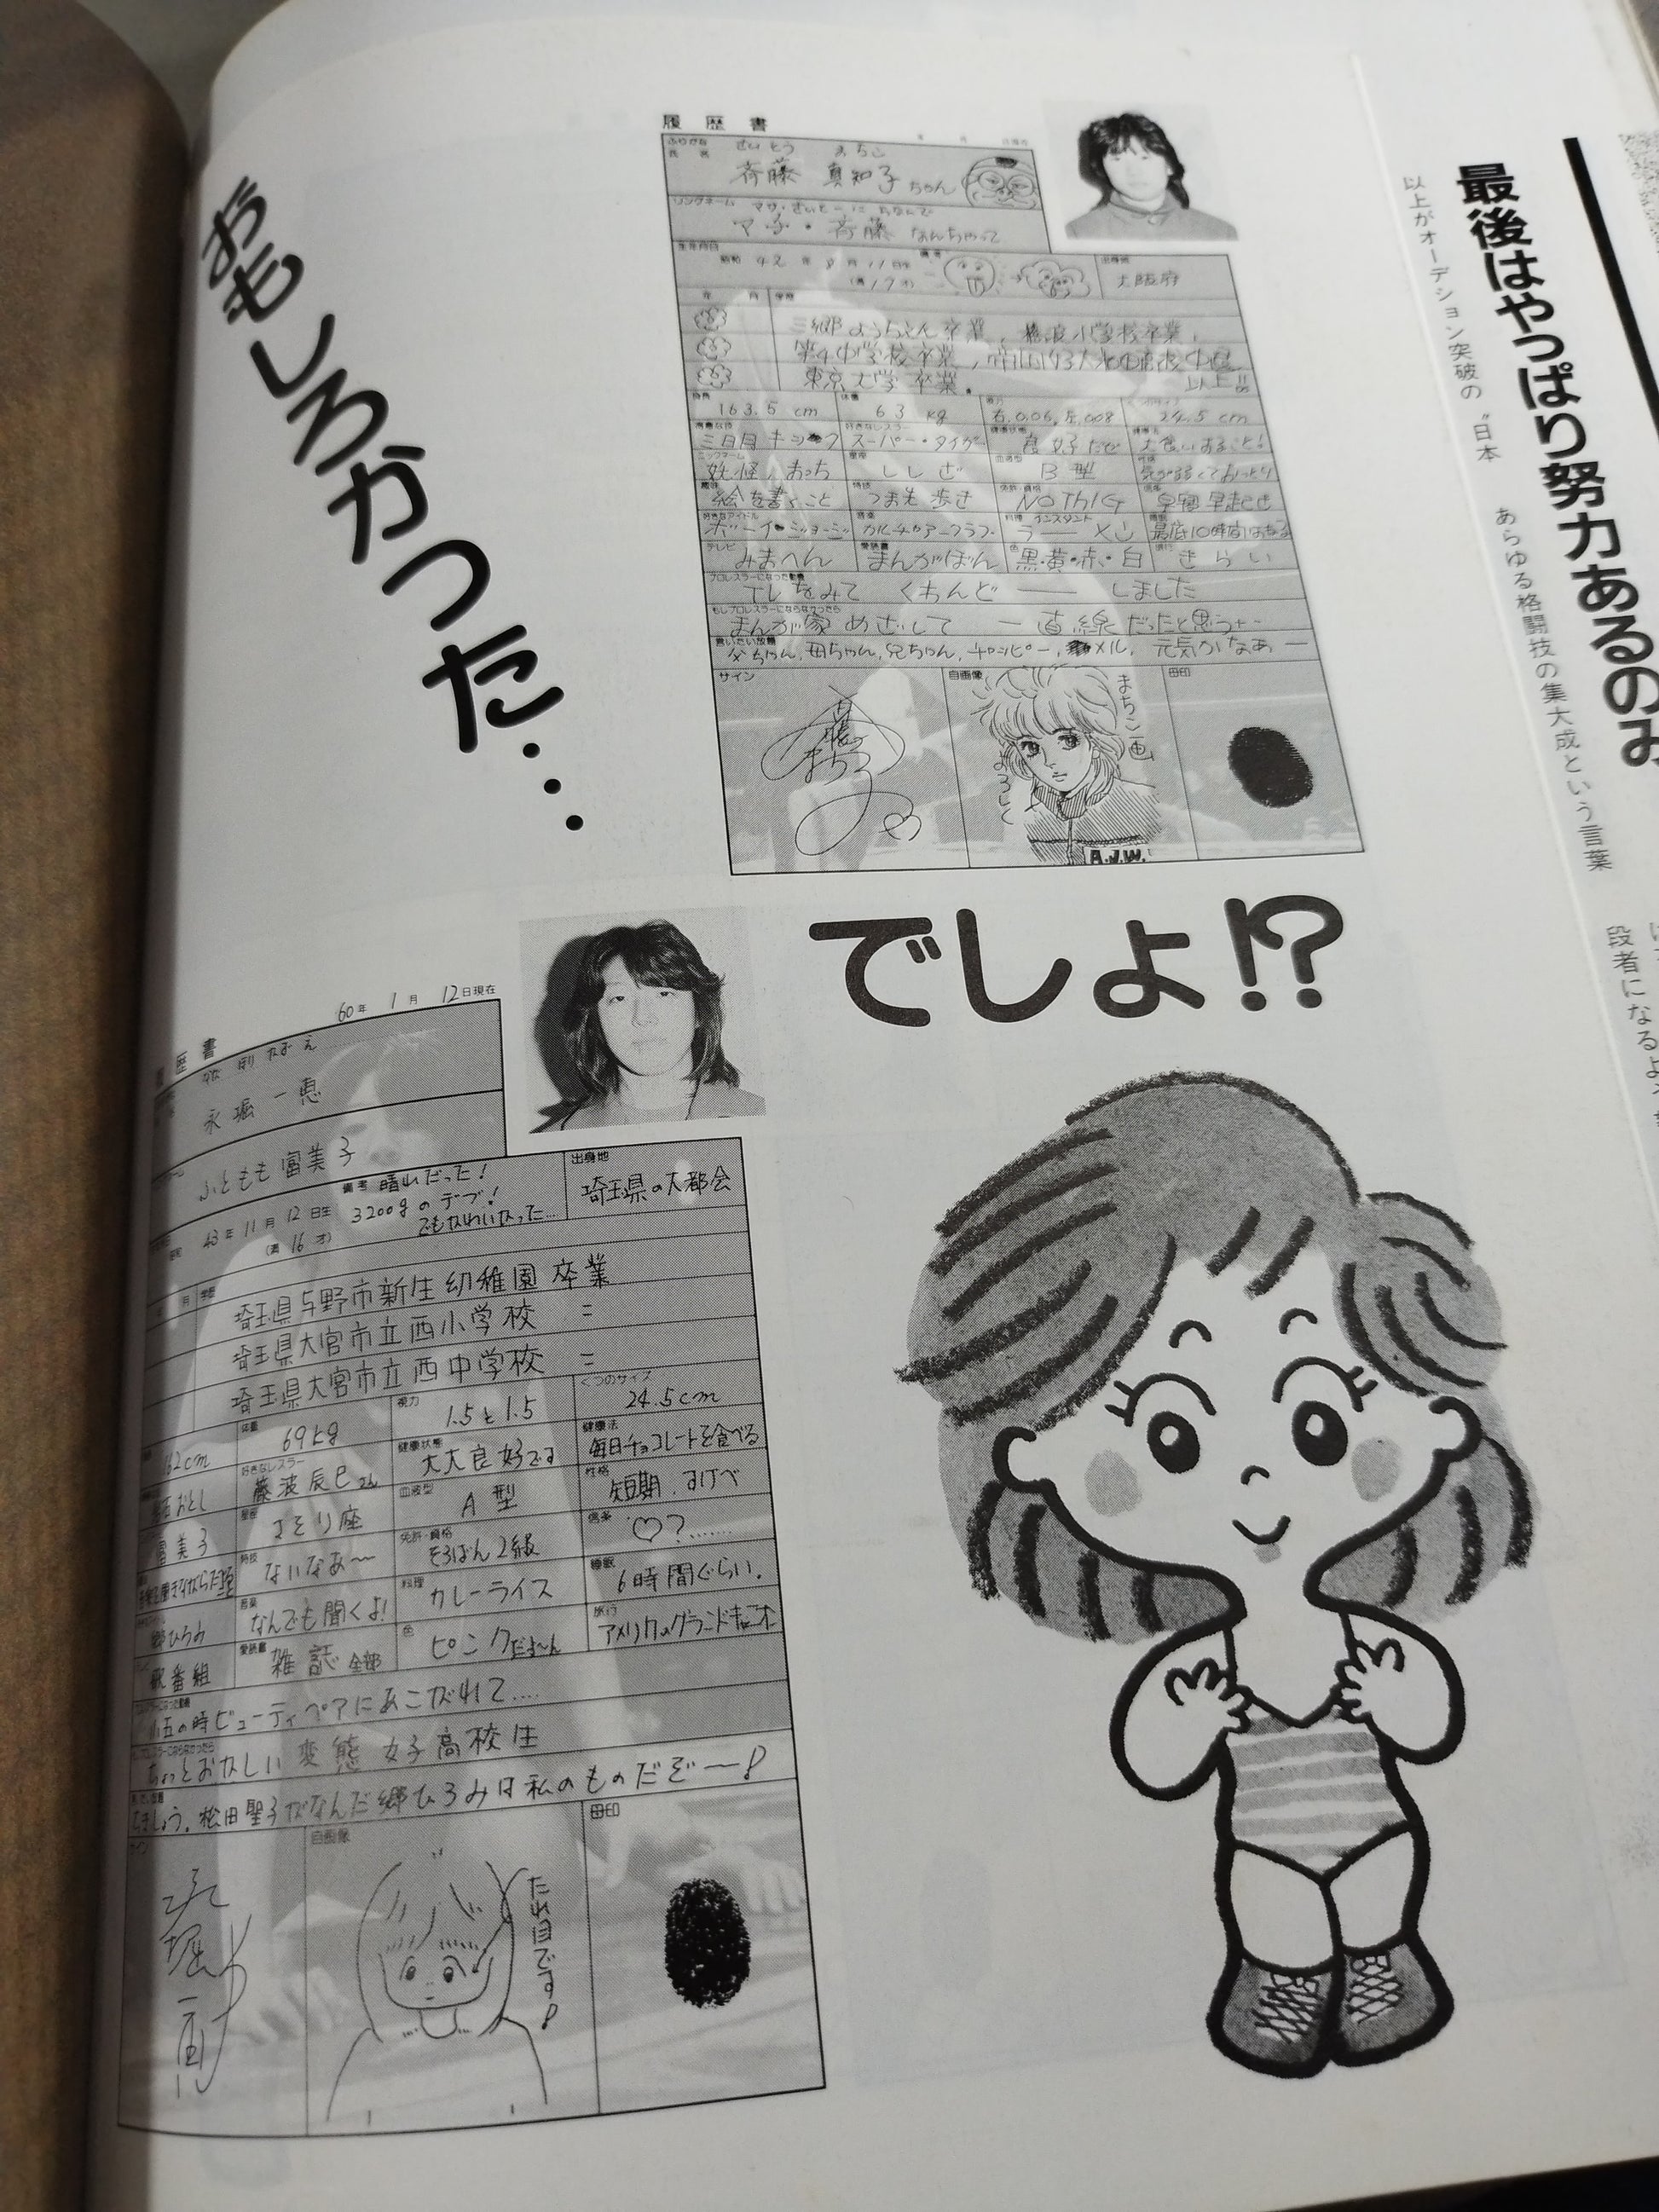 おもしろかった…
でしょ!?
履歴書
ふりがな
さいとう まちこ
氏名
斉藤 真知子ちゃん
リングネーム
マサ・さいとーにちなんで
マチ・斉藤 なんちゃって
生年月日
昭和 42年 8月 11日生
(満17才)
備考
出身地
大阪府
年 月 学歴
三郷ようちえん卒業,
小学校卒業,
第4中学校卒業,
東京大学 卒業. 以上!!
身長
163.5 cm
体重
63 kg
視力
右.0.06,左.008
24.5 cm
得意な技
三日月キック
好きなレスラー
スーパー・タイガー
健康状態
良好だぜ
健康法
大食いすること!
ニックネーム
妖怪,おっち
星座
ししざ
血液型
B型
性格
気が弱くておっとり
趣味
絵を書くこと
特技
つまも歩き
免許・資格
NOTHIG
信条
早寝早起き
好きなアイドル
ボーイ・ジョージ
音楽
カルチャアークラブ
料理
インスタント
ラーメン
睡眠
最底10時間はねる
テレビ
みまへん
愛読書
まんがぼん
色
黒・黄・赤・白
旅行
きらい
プロレスラーになった動機
テレビをみて くわんどーーしました
もしプロレスラーにならなかったら
まんが家めざして 一直線だったと思うわ
言いたい放題
父ちゃん,母ちゃん,兄ちゃん,チャッピー,メル,元気かなあー
サイン
自画像
まちこ画
よろしく
A.J.W.
拇印
60年 1月 12日現在
履歴書
ながほりかずえ
永堀一恵
ふともも富美子
43年 11月 12日生
(満16才)
備考
晴れだった!
3200gのデブ!
でもかわいかった…
出身地
埼玉県の大都会
年 月 学歴
埼玉県与野市新生幼稚園 卒業
埼玉県大宮市立西小学校 〃
埼玉県大宮市立西中学校 〃
162cm
体重
69kg
視力
1.5と1.5
くつのサイズ
24.5cm
好きなレスラー
藤波辰巳さん
健康状態
大大良好です
健康法
毎日チョコレートを食べる
富美子
星座
さそり座
血液型
A型
性格
短期.すけべ
特技
ないなあ〜
免許・資格
そろばん2級
信条
♡?……
郷ひろみ
音楽
なんでも聞くよ!
料理
カレーライス
睡眠
6時間ぐらい.
歌番組
愛読書
雑誌全部
色
ピンクだよ〜ん
旅行
アメリカのグランドキャニオン
小五の時ビューティペアにあこがれて….
ちょっとおかしい変態女子高校生
ちきしょう.松田聖子がなんだ郷ひろみは私のものだぞ〜!
自画像
たれ目です!
拇印
最後はやっぱり努力あるのみ
以上がオーディション突破の〝日本
あらゆる格闘技の集大成という言葉
段者になるよう